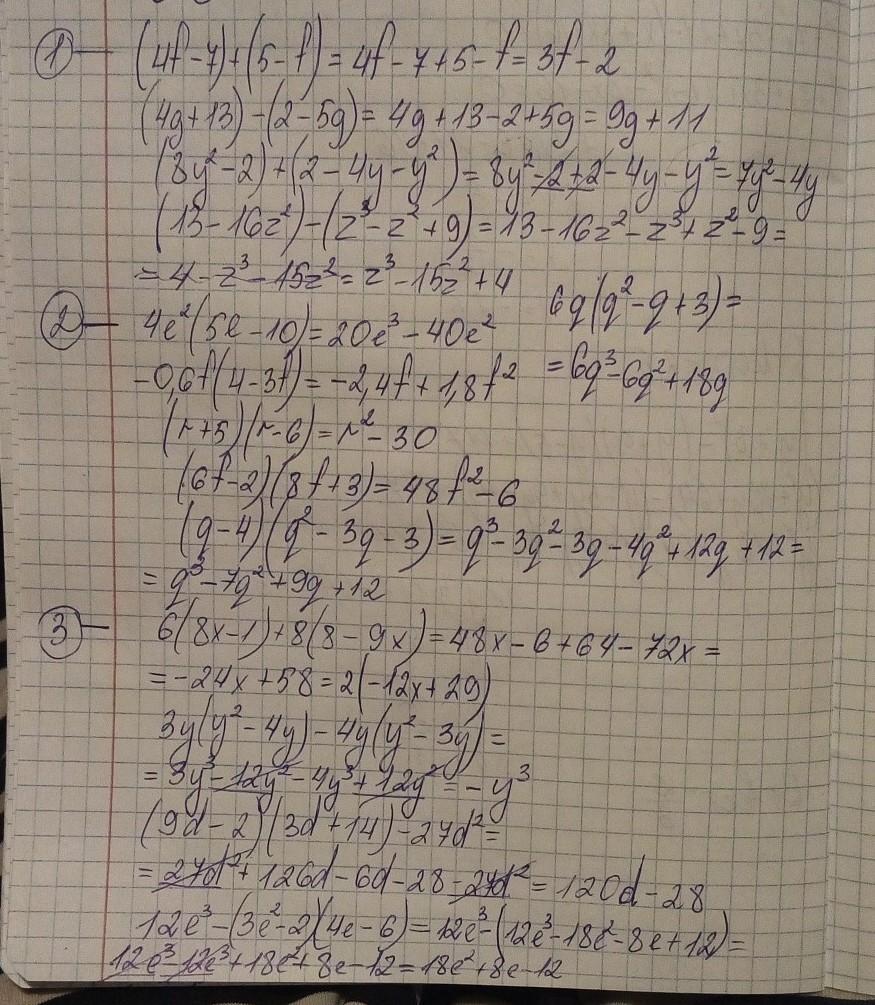 ① — (4f-7)+(5-f)=4f-7+5-f=3f-2
(4g+13)-(2-5g)=4g+13-2+5g=9g+11
(8y²-2)+(2-4y-y²)=8y²-2+2-4y-y²=7y²-4y
(13-16z²)-(z³-z²+9)=13-16z²-z³+z²-9=
=4-z³-15z²=z³-15z²+4
② — 4e²(5e-10)=20e³-40e²
-0,6f(4-3f)=-2,4f+1,8f²
6q(q²-q+3)=
=6q³-6q²+18q
(r+5)(r-6)=r²-30
(6f-2)(8f+3)=48f²-6
(q-4)(q²-3q-3)=q³-3q²-3q-4q²+12q+12=
=q³-7q²+9q+12
③ — 6(8x-1)+8(8-9x)=48x-6+64-72x=
=-24x+58=2(-12x+29)
3y(y²-4y)-4y(y²-3y)=
=3y³-12y²-4y³+12y²=-y³
(9d-2)(3d+14)-27d²=
=27d²+126d-6d-28-27d²=120d-28
12e³-(3e²-2)(4e-6)=12e³-(12e³-18e²-8e+12)=
12e³-12e³+18e²+8e-12=18e²+8e-12